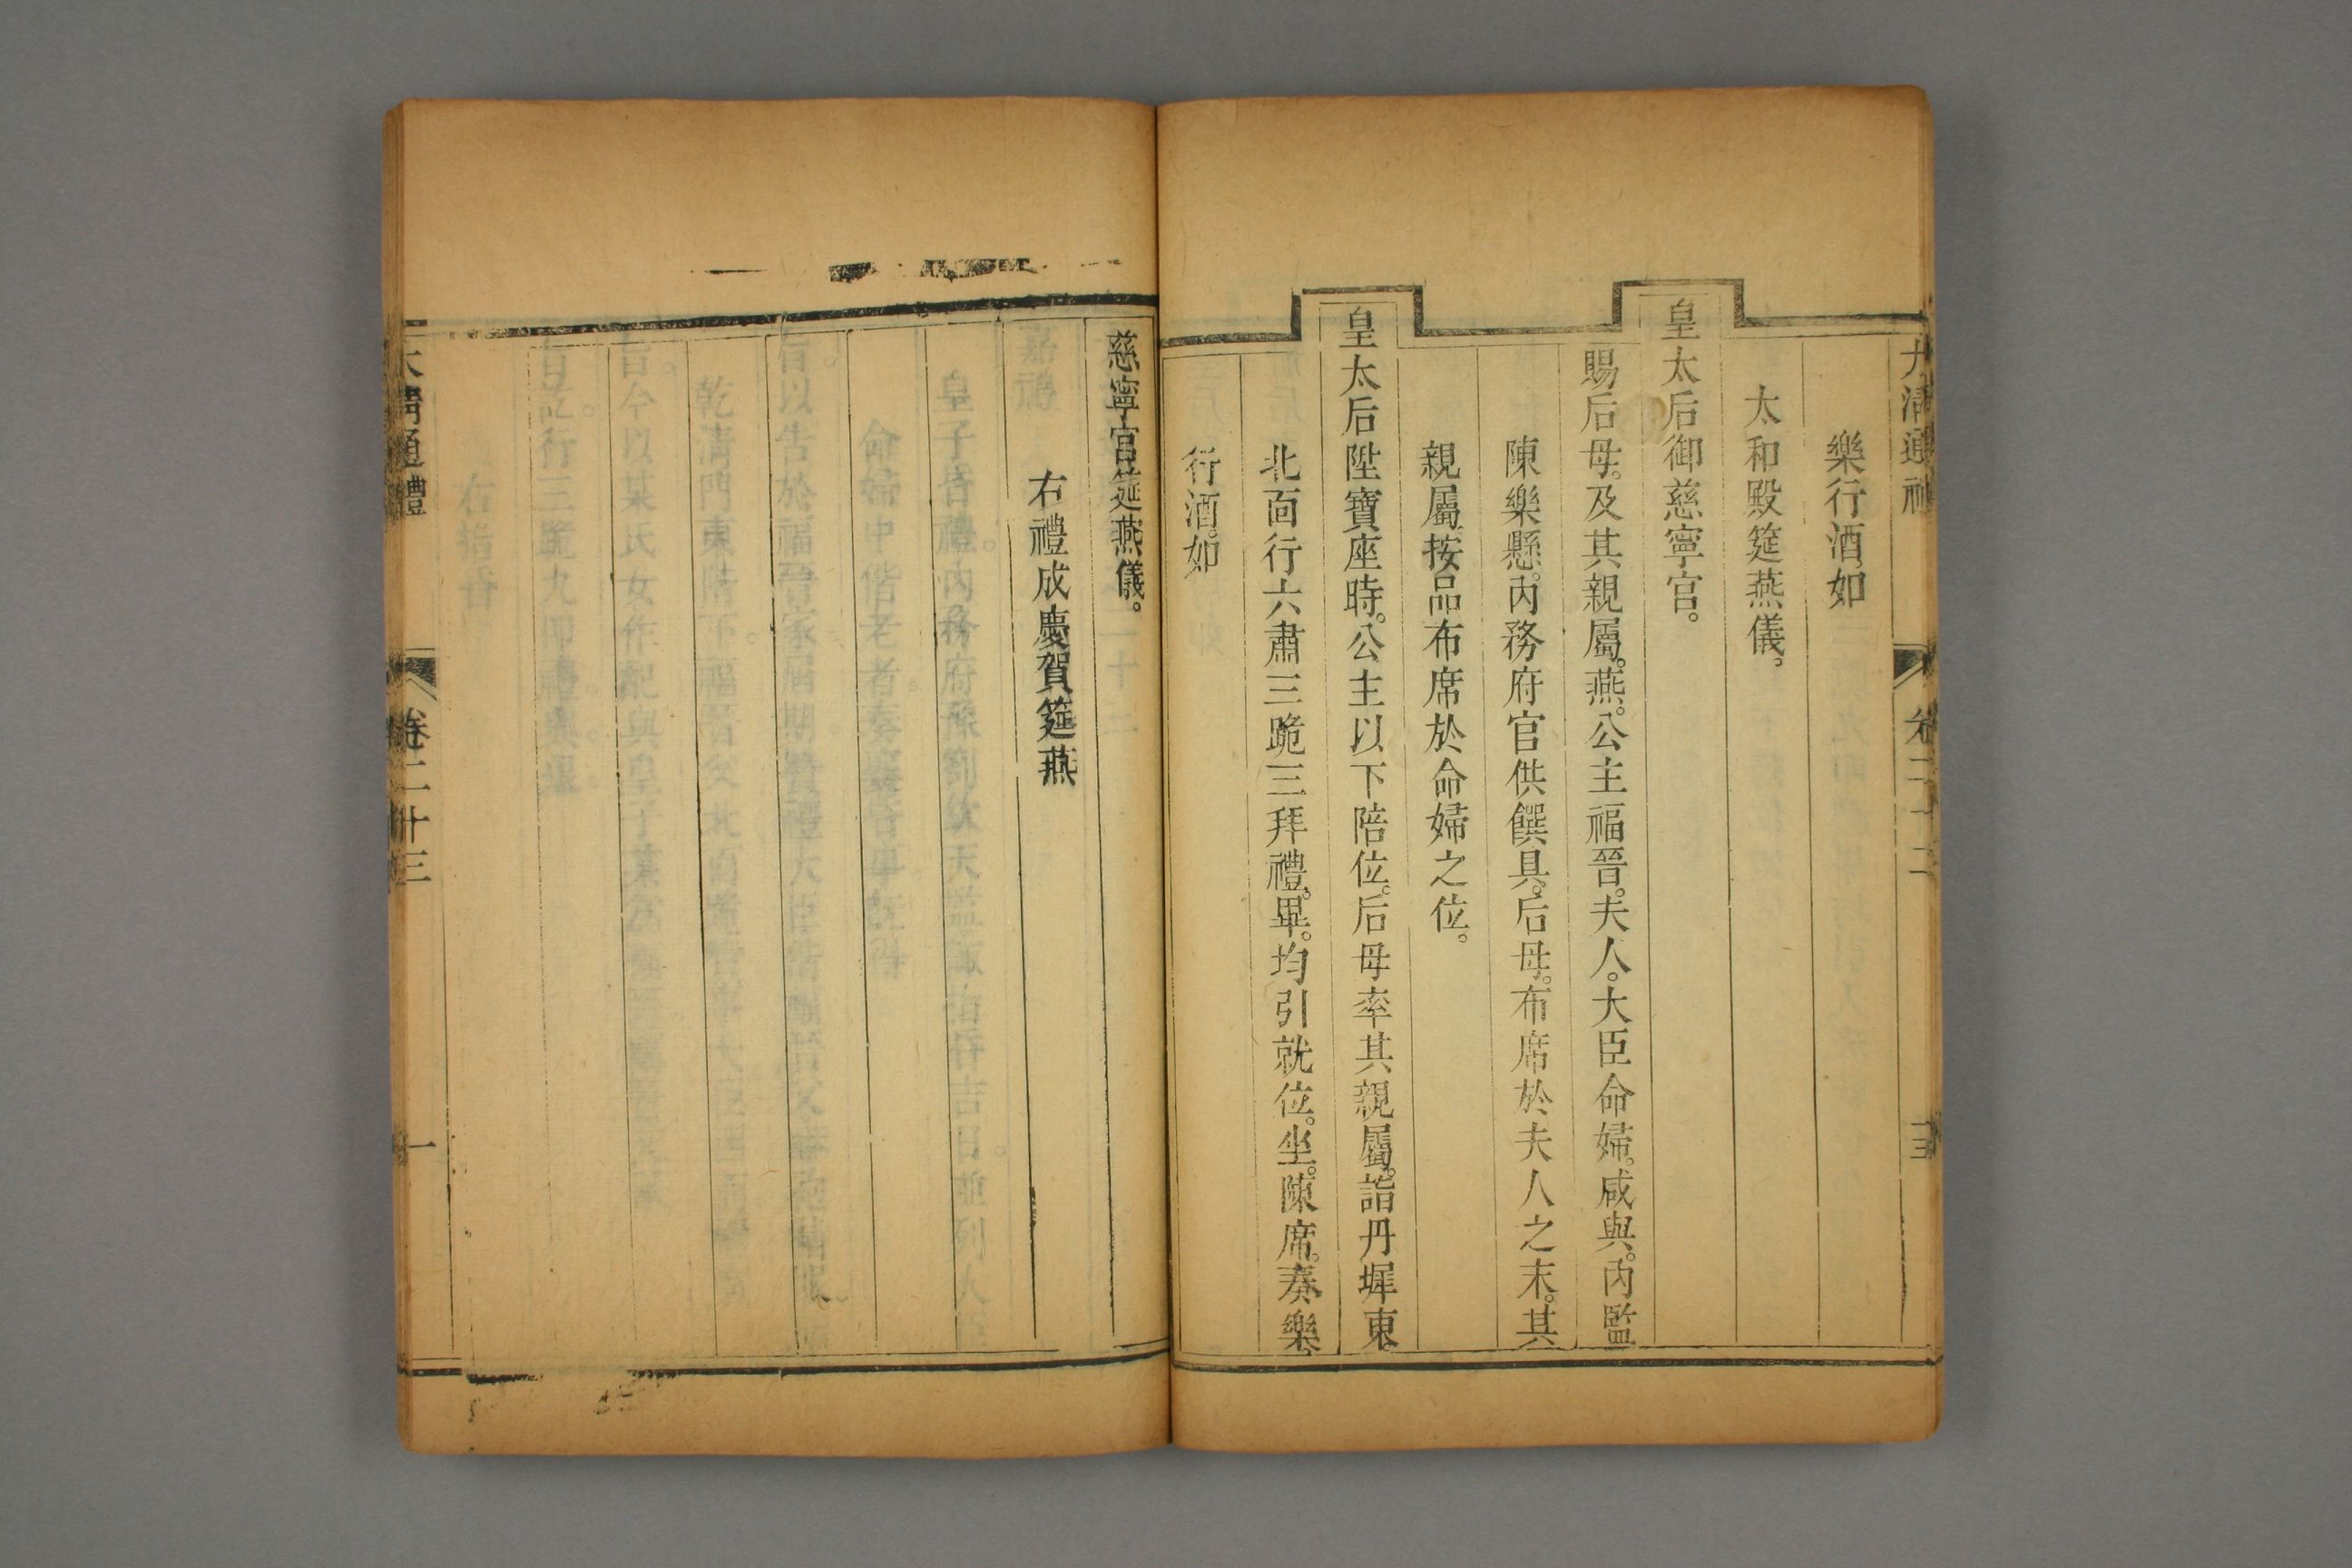 大清通禮 卷二十二
樂行酒如
太和殿筵燕儀。
皇太后御慈寧宮。
賜后母。及其親屬。燕。公主福晉。夫人。大臣命婦。咸與。內監
陳樂懸。內務府官供饌具。后母。布席於夫人之末。其
親屬。按品布席於命婦之位。
皇太后陞寶座時。公主以下陪位。后母率其親屬。詣丹墀東。
北面行六肅三跪三拜禮。畢。均引就位。坐。陳席。奏樂。
行酒。如
慈寧宮筵燕儀。
右禮成慶賀筵燕
大清通禮 卷二十三 一